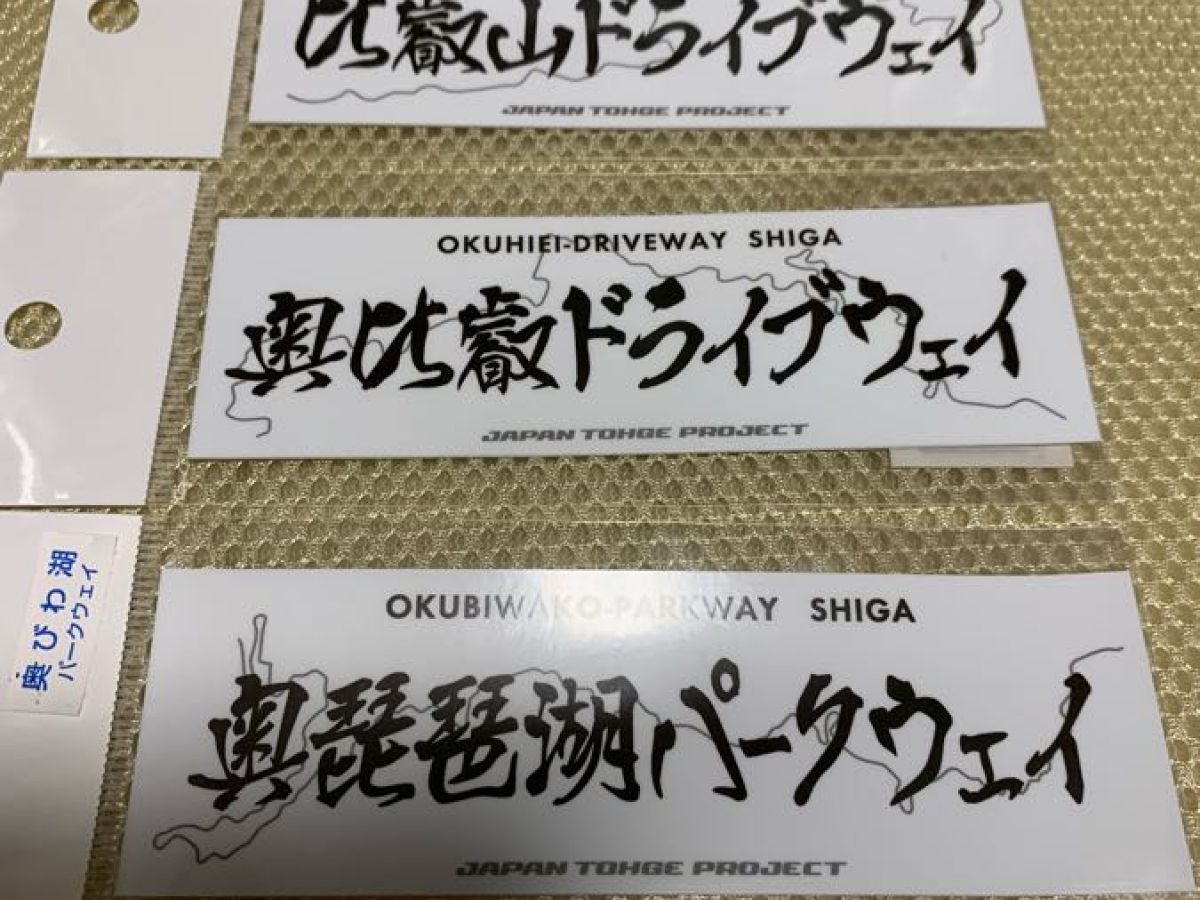 比叡山ドライブウェイ
JAPAN TOHGE PROJECT
OKUHIEI-DRIVEWAY SHIGA
奥比叡ドライブウェイ
JAPAN TOHGE PROJECT
奥びわ湖
パークウェイ
OKUBIWAKO-PARKWAY SHIGA
奥琵琶湖パークウェイ
JAPAN TOHGE PROJECT